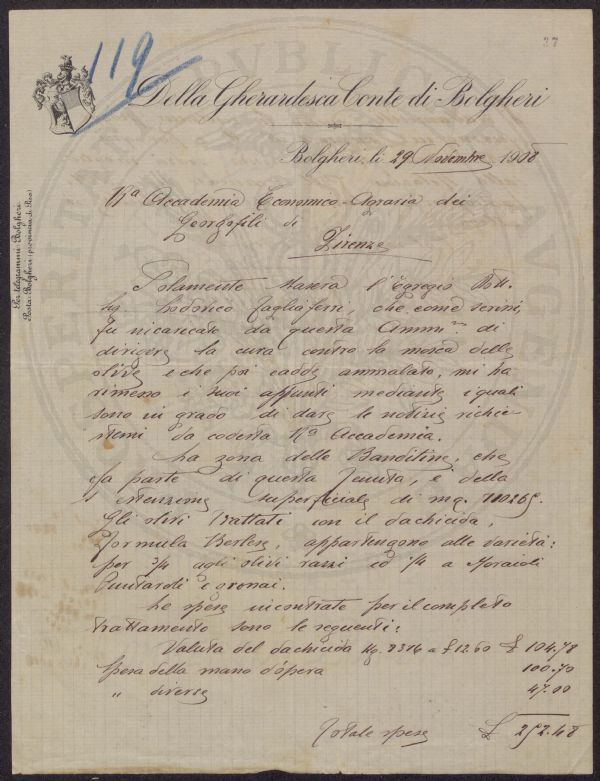 27
119
Della Gherardesca Conte di Bolgheri
Bolgheri, li 29 Novembre 1908
Per telegrammi: Bolgheri
Posta: Bolgheri (provincia di Pisa)
Rª Accademia Economico-Agraria dei
Georgofili di
Firenze
Solamente stasera l'Egregio Dott.
Lodovico Tagliaferri, che come scrissi,
fu incaricato da questa Amm.ne di
dirigere la cura contro la mosca delle
olive e che poi cadde ammalato, mi ha
rimesso i suoi appunti mediante i quali
sono in grado di dare le notizie richie-
stemi da codesta Rª Accademia.
La zona delle Banditine, che
fa parte di questa Tenuta, è della
estensione superficiale di mq. 110265.
Gli olivi trattati con il dachicida,
formula Berlese, appartengono alle varietà:
per 3/4 agli olivi razzi ed 1/4 a Moraioli
e
Le spese incontrate per il completo
trattamento sono le seguenti:
Valuta del dachicida Kg. a £ 12.60 £ 104.78
Spesa della mano d'opera 100.70
" diverse 47.00
Totale spese £ 252.48